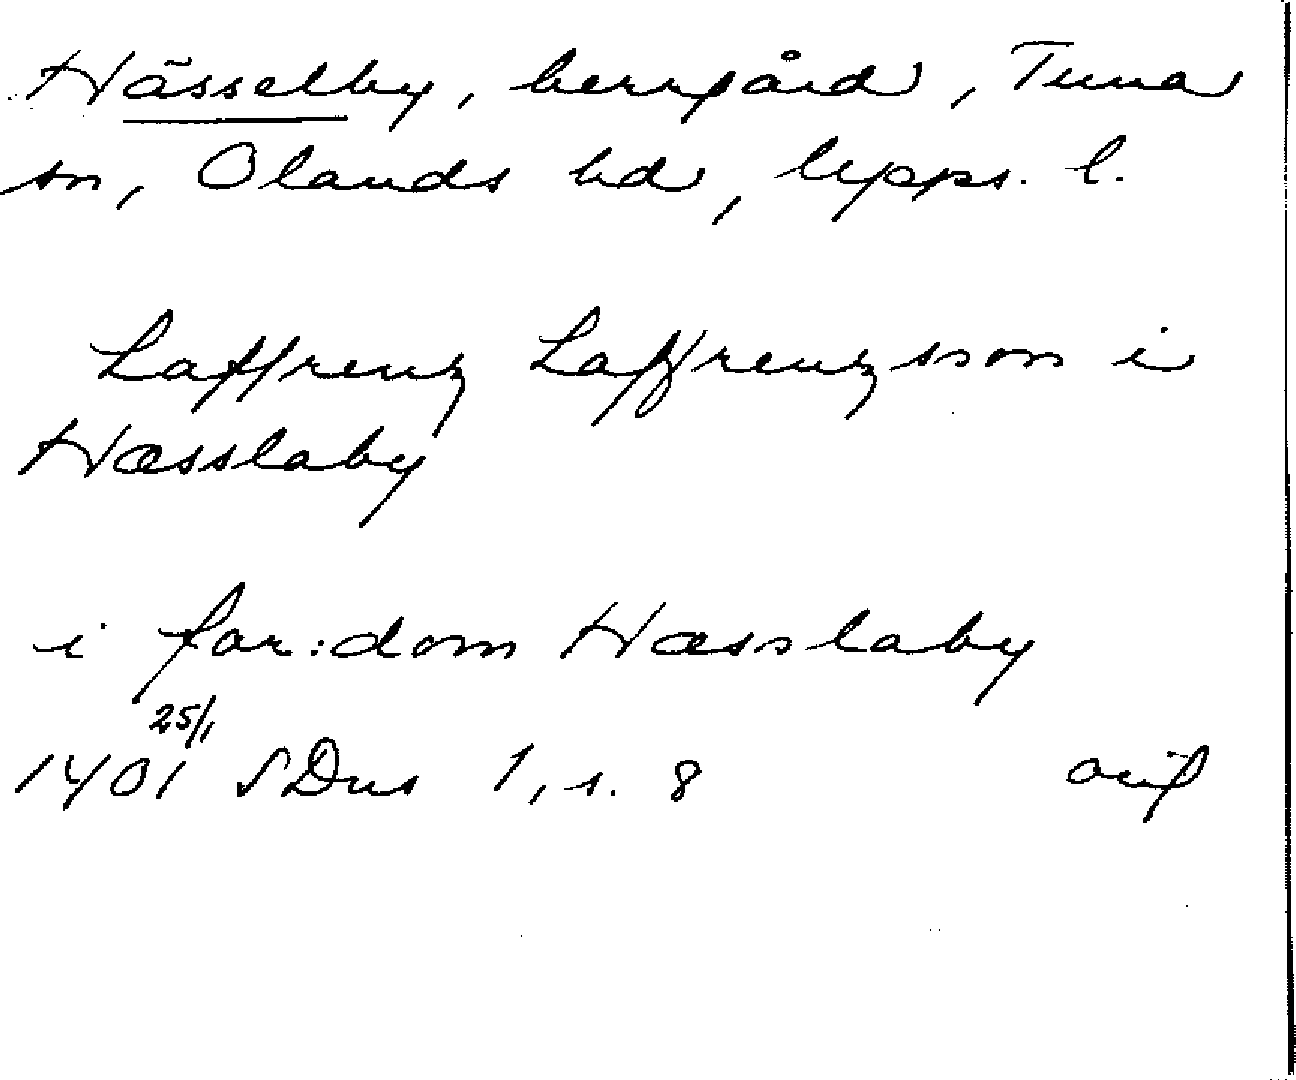 Hässelby, herrgård, Tuna
sn, Olands hd, Upps. l.
Laffrenz Laffrenzsson i
Hæsslaby
i for:dom Hæsslaby
25/1
1401 SDns 1, s. 8 orig